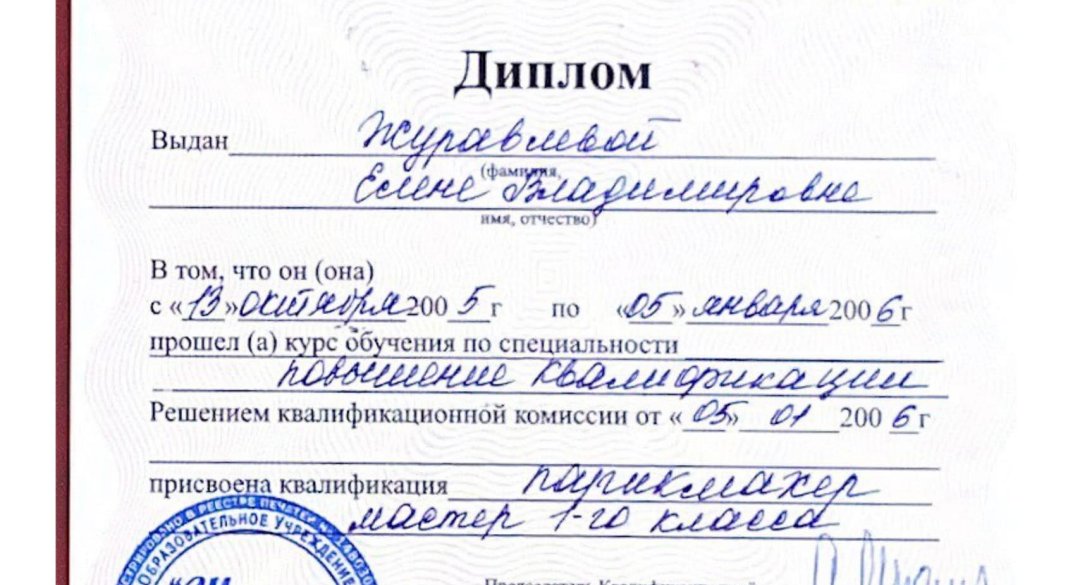 Диплом
Выдан Журавлевой
(фамилия,
Елене Владимировне
имя, отчество)
В том, что он (она)
с «13» октября 2005 г по «05» января 2006 г
прошел (а) курс обучения по специальности
повышение квалификации
Решением квалификационной комиссии от «05» 01 2006 г
присвоена квалификация парикмахер
мастер 1-го класса
ОБРАЗОВАТЕЛЬНОЕ УЧРЕЖДЕНИЕ